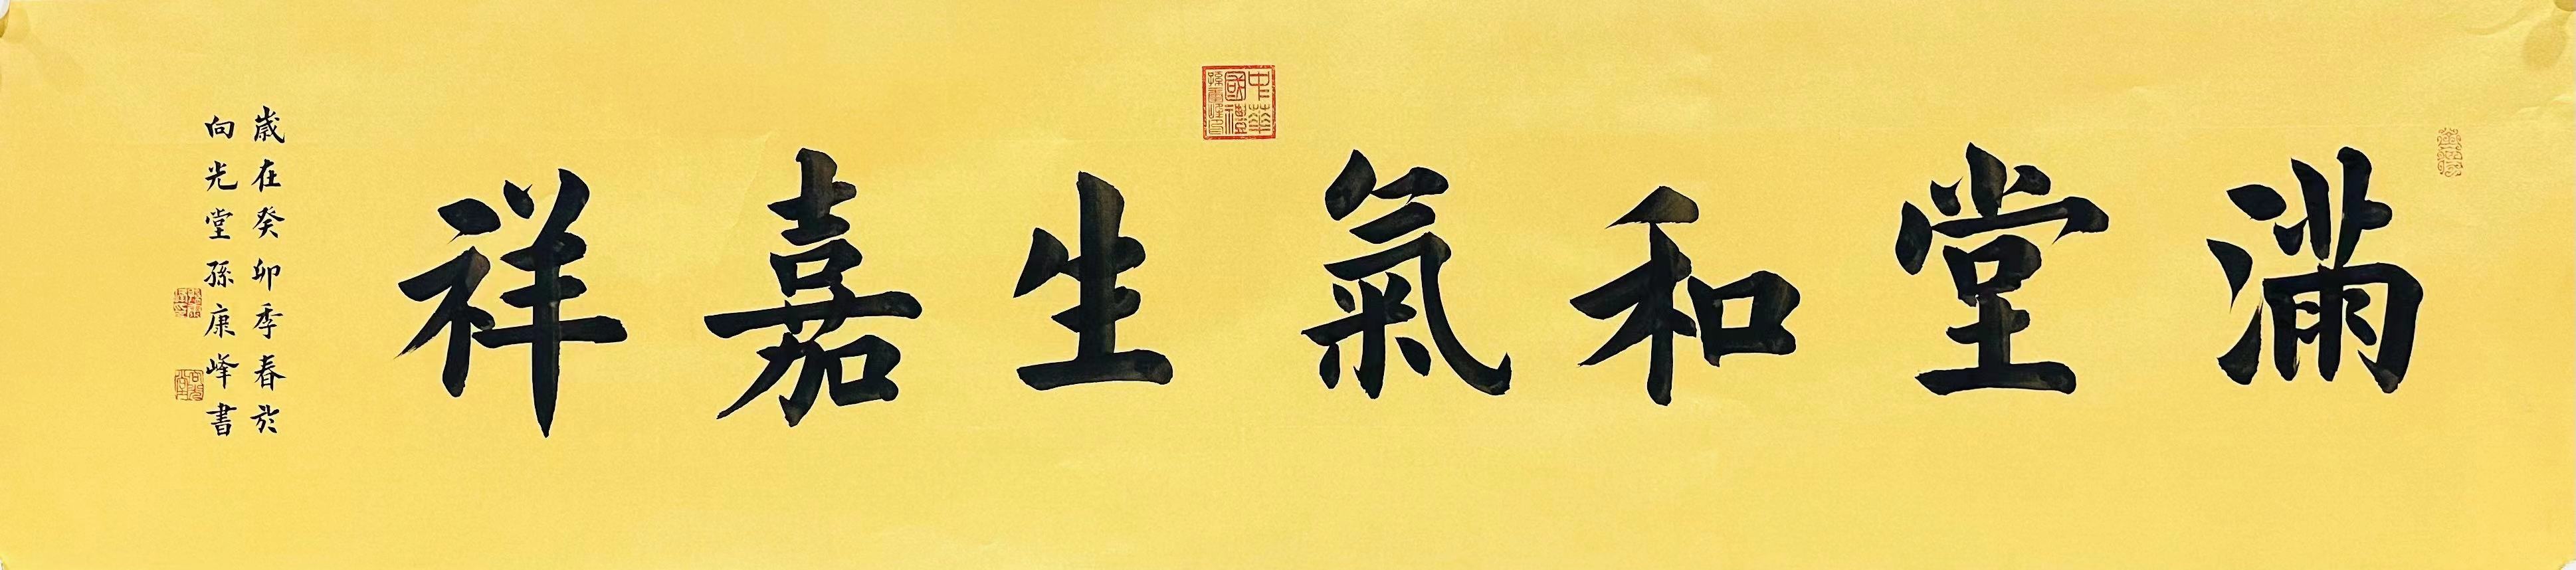 滿堂和氣生嘉祥
歲在癸卯季春於
向光堂孫康峰書
中華
國禮